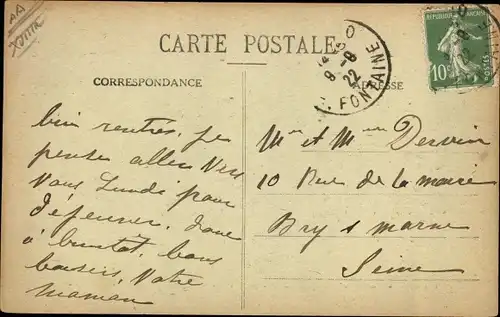 AA
XVIIIe
CARTE POSTALE
CORRESPONDANCE
ADRESSE
FONTAINE
8-8
22
REPUBLIQUE FRANÇAISE
10c
POSTES
bien rentrés, je
pense aller Vers
Vous Lundi pour
déjeuner, donc
à bientôt, bons
baisers, Votre
Maman
Mr et Mme
10 Rue de la mairie
Bry s marne
Seine